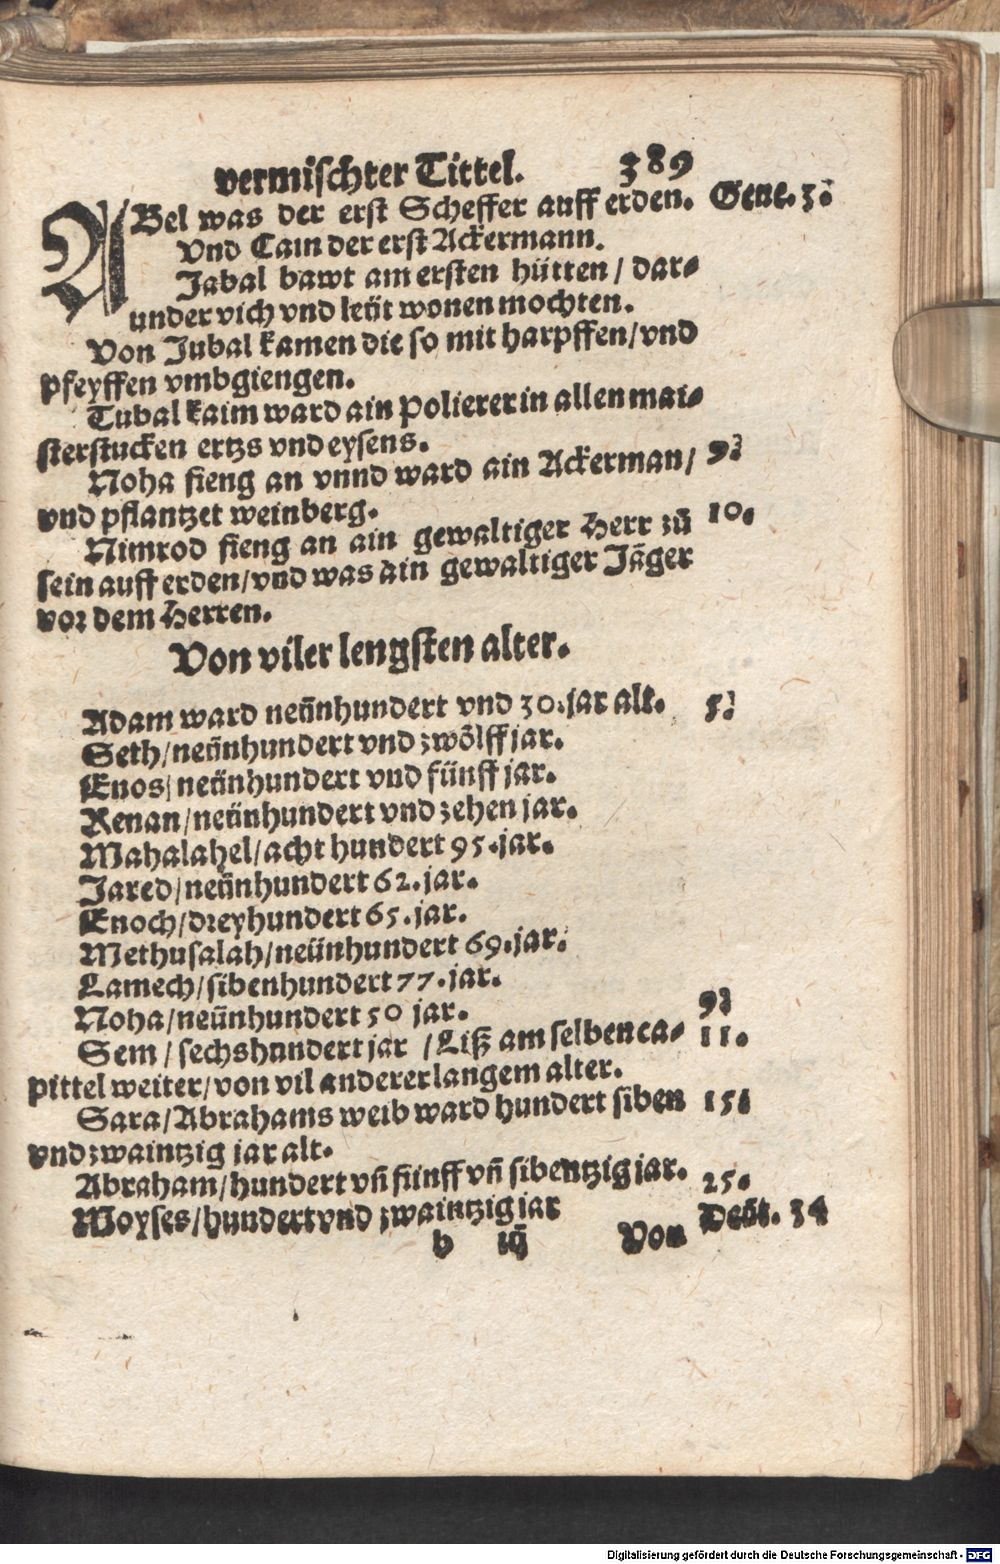 vermischter Tittel. 389
ABel was der erst Scheffer auff erden. Gene. 3.
vnd Cain der erst Ackermann.
Jabal bawt am ersten hütten / dar-
under vich vnd leüt wonen mochten.
Von Jubal kamen die so mit harpffen/vnd
pfeyffen vmbgiengen.
Tubal kaim ward ain Polierer in allen mai-
sterstucken ertzs vnd eysens.
Noha fieng an vnnd ward ain Ackerman/ 9.
vnd pflantzet weinberg.
Nimrod fieng an ain gewaltiger Herr zů 10.
sein auff erden/vnd was ain gewaltiger Jäger
vor dem Herren.
Von viler lengsten alter.
Adam ward neünhundert vnd 30.jar alt. 5.
Seth/neünhundert vnd zwölff jar.
Enos/neünhundert vnd fünff jar.
Kenan/neünhundert vnd zehen jar.
Mahalahel/acht hundert 95.jar.
Jared/neünhundert 62.jar.
Enoch/dreyhundert 65.jar.
Methusalah/neünhundert 69.jar.
Lamech/sibenhundert 77.jar.
Noha/neünhundert 50 jar. 9.
Sem/sechshundert jar /Liß am selben ca- 11.
pittel weiter/von vil anderer langem alter.
Sara/Abrahams weib ward hundert siben 15.
vnd zwaintzig jar alt.
Abraham/hundert vñ fünff vñ sibentzig jar. 25.
Moyses/hundert vnd zwaintzig jar Deüt. 34
b iij Von
Digitalisierung gefördert durch die Deutsche Forschungsgemeinschaft - DFG